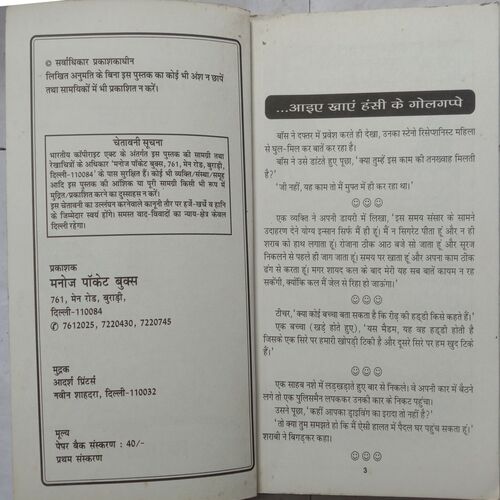 © सर्वाधिकार प्रकाशकाधीन
लिखित अनुमति के बिना इस पुस्तक का कोई भी अंश न छापें
तथा सामयिकों में भी प्रकाशित न करें।
चेतावनी सूचना
भारतीय कॉपीराइट एक्ट के अंतर्गत इस पुस्तक की सामग्री तथा
रेखाचित्रों के अधिकार 'मनोज पॉकेट बुक्स, 761, मेन रोड, बुराड़ी,
दिल्ली-110084' के पास सुरक्षित हैं। कोई भी व्यक्ति/संस्था/समूह
आदि इस पुस्तक की आंशिक या पूरी सामग्री किसी भी रूप में
मुद्रित/प्रकाशित करने का दुस्साहस न करें।
इस चेतावनी का उल्लंघन करनेवाले कानूनी तौर पर हर्जे-खर्चे व हानि
के जिम्मेदार स्वयं होंगे। समस्त वाद-विवादों का न्याय-क्षेत्र केवल
दिल्ली रहेगा।
प्रकाशक
मनोज पॉकेट बुक्स
761, मेन रोड, बुराड़ी,
दिल्ली-110084
✆ 7612025, 7220430, 7220745
मुद्रक
आदर्श प्रिंटर्स
नवीन शाहदरा, दिल्ली-110032
मूल्य
पेपर बैक संस्करण : 40/-
प्रथम संस्करण
...आइए खाएं हंसी के गोलगप्पे
बॉस ने दफ्तर में प्रवेश करते ही देखा, उनका स्टेनो रिसेप्शनिस्ट महिला
से घुल-मिल कर बातें कर रहा था।
बॉस ने उसे डांटते हुए पूछा, 'क्या तुम्हें इस काम की तनख्वाह मिलती
है?'
'जी नहीं, यह काम तो मैं मुफ्त में ही कर रहा था।'
☺☺☺
एक व्यक्ति ने अपनी डायरी में लिखा, 'इस समय संसार के सामने
उदाहरण देने योग्य इन्सान सिर्फ मैं ही हूं। मैं न सिगरेट पीता हूं और न ही
शराब को हाथ लगाता हूं। रोजाना ठीक आठ बजे सो जाता हूं और सूरज
निकलने से पहले ही जाग जाता हूं। समय पर खाता हूं और अपना काम ठीक
ढंग से करता हूं। मगर शायद कल के बाद मेरी यह सब बातें कायम न रह
सकेंगी, क्योंकि कल मैं जेल से रिहा हो जाऊंगा।'
☺☺☺
टीचर, 'क्या कोई बच्चा बता सकता है कि रीढ़ की हड्डी किसे कहते हैं।'
एक बच्चा (खड़े होते हुए), 'यस मैडम, यह वह हड्डी होती है
जिसके एक सिरे पर हमारी खोपड़ी टिकी है और दूसरे सिरे पर हम खुद टिके
हैं।'
☺☺☺
एक साहब नशे में लड़खड़ाते हुए बार से निकले। वे अपनी कार में बैठने
लगे तो एक पुलिसमैन लपककर उनकी कार के निकट पहुंचा।
उसने पूछा, 'कहीं आपका ड्राइविंग का इरादा तो नहीं है?'
'तो क्या तुम समझते हो कि मैं ऐसी हालत में पैदल घर पहुंच सकता हूं।'
शराबी ने बिगड़कर कहा।
☺☺☺
3